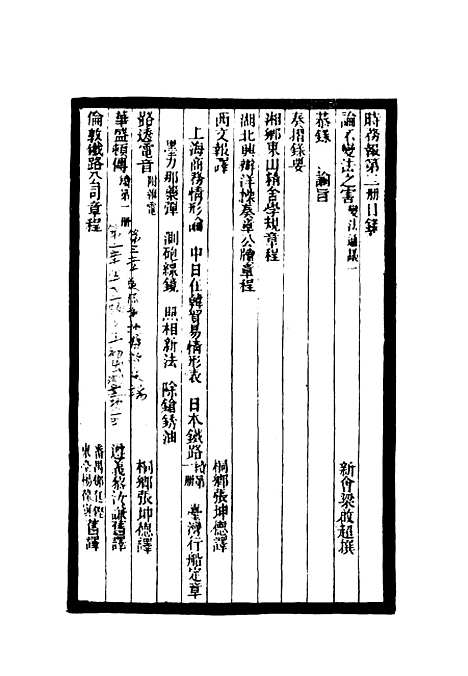 時務報第二冊目錄
論不變法之害 變法通議一 新會梁啟超撰
恭錄 諭旨
奏摺錄要
湘鄉東山精舍學規章程
湖北興辦洋棉奏章公牘章程
西文報譯 桐鄉張坤德譯
上海商務情形論 中日在韓貿易情形表 日本鐵路 續第一冊 臺灣行船定章
黑力那藥彈 測砲線鏡 照相新法 除鎗銹油
路透電音 桐鄉張坤德譯
華盛頓傳 續第一冊 遵義黎汝謙舊譯
倫敦鐵路公司章程 番禺 舊譯